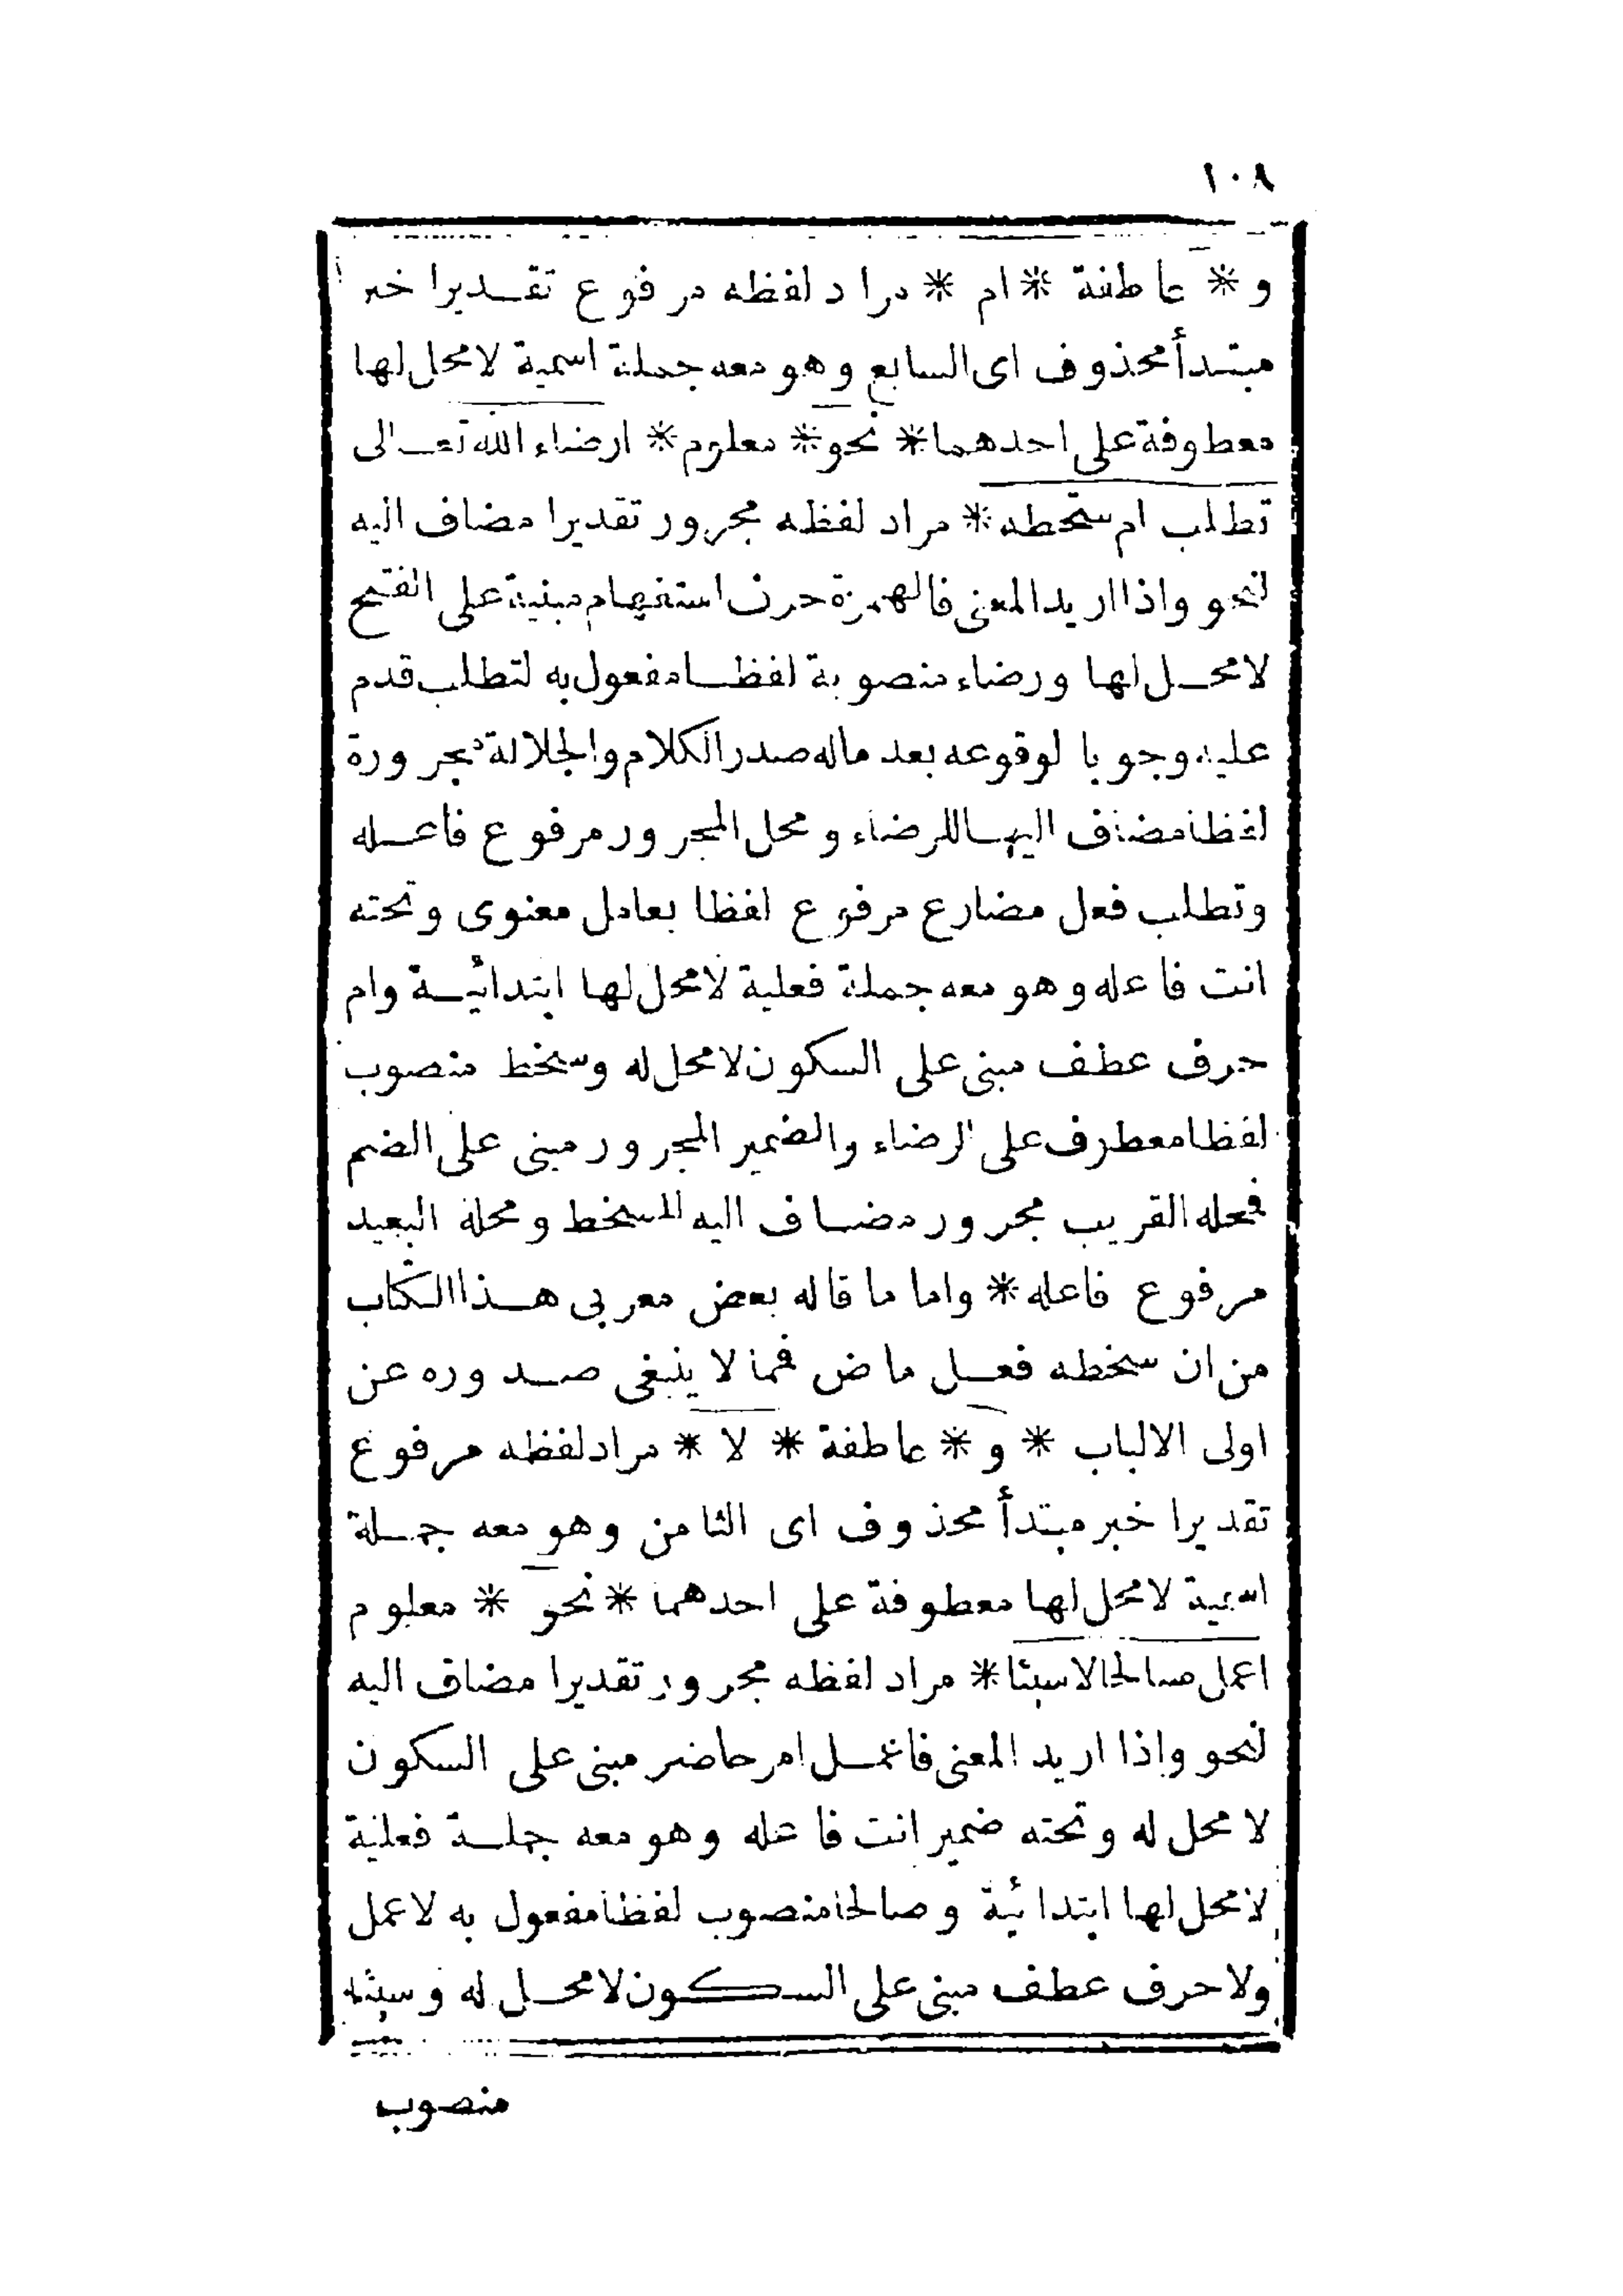 ١٠٨
و * عاطفة * ام * مراد لفظه مرفوع تقديرا خبر
مبتدأ محذوف اى السابع وهو معه جملة اسمية لا محل لها
معطوفة على احدهما * نحو * معلوم * ارضاء الله تعالى
تطلب ام سخطه * مراد لفظه مجرور تقديرا مضاف اليه
لنحو واذا اريد المعنى فالهمزة حرف استفهام مبنية على الفتح
لا محل لها ورضاء منصوبة لفظا مفعول به لتطلب قدم
عليه وجوبا لوقوعه بعد ماله صدر الكلام والجلالة مجرورة
لفظا مضاف اليها للرضاء ومحل المجرور مرفوع فاعله
وتطلب فعل مضارع مرفوع لفظا بعامل معنوى وتحته
انت فاعله وهو معه جملة فعلية لا محل لها ابتدائية وام
حرف عطف مبنى على السكون لا محل له وسخط منصوب
لفظا معطوف على الرضاء والضمير المجرور مبنى على الضم
فمحله القريب مجرور مضاف اليه للسخط ومحله البعيد
مرفوع فاعله * واما ما قاله بعض معربى هذا الكتاب
من ان سخطه فعل ماض فمما لا ينبغى صدوره عن
اولى الالباب * و * عاطفة * لا * مراد لفظه مرفوع
تقديرا خبر مبتدأ محذوف اى الثامن وهو معه جملة
اسمية لا محل لها معطوفة على احدهما * نحو * معلوم
اعمل صالحا لا سيئا * مراد لفظه مجرور تقديرا مضاف اليه
لنحو واذا اريد المعنى فاعمل امر حاضر مبنى على السكون
لا محل له وتحته ضمير انت فاعله وهو معه جملة فعلية
لا محل لها ابتدائية وصالحا منصوب لفظا مفعول به لاعمل
ولا حرف عطف مبنى على السكون لا محل له وسيئه
منصوب